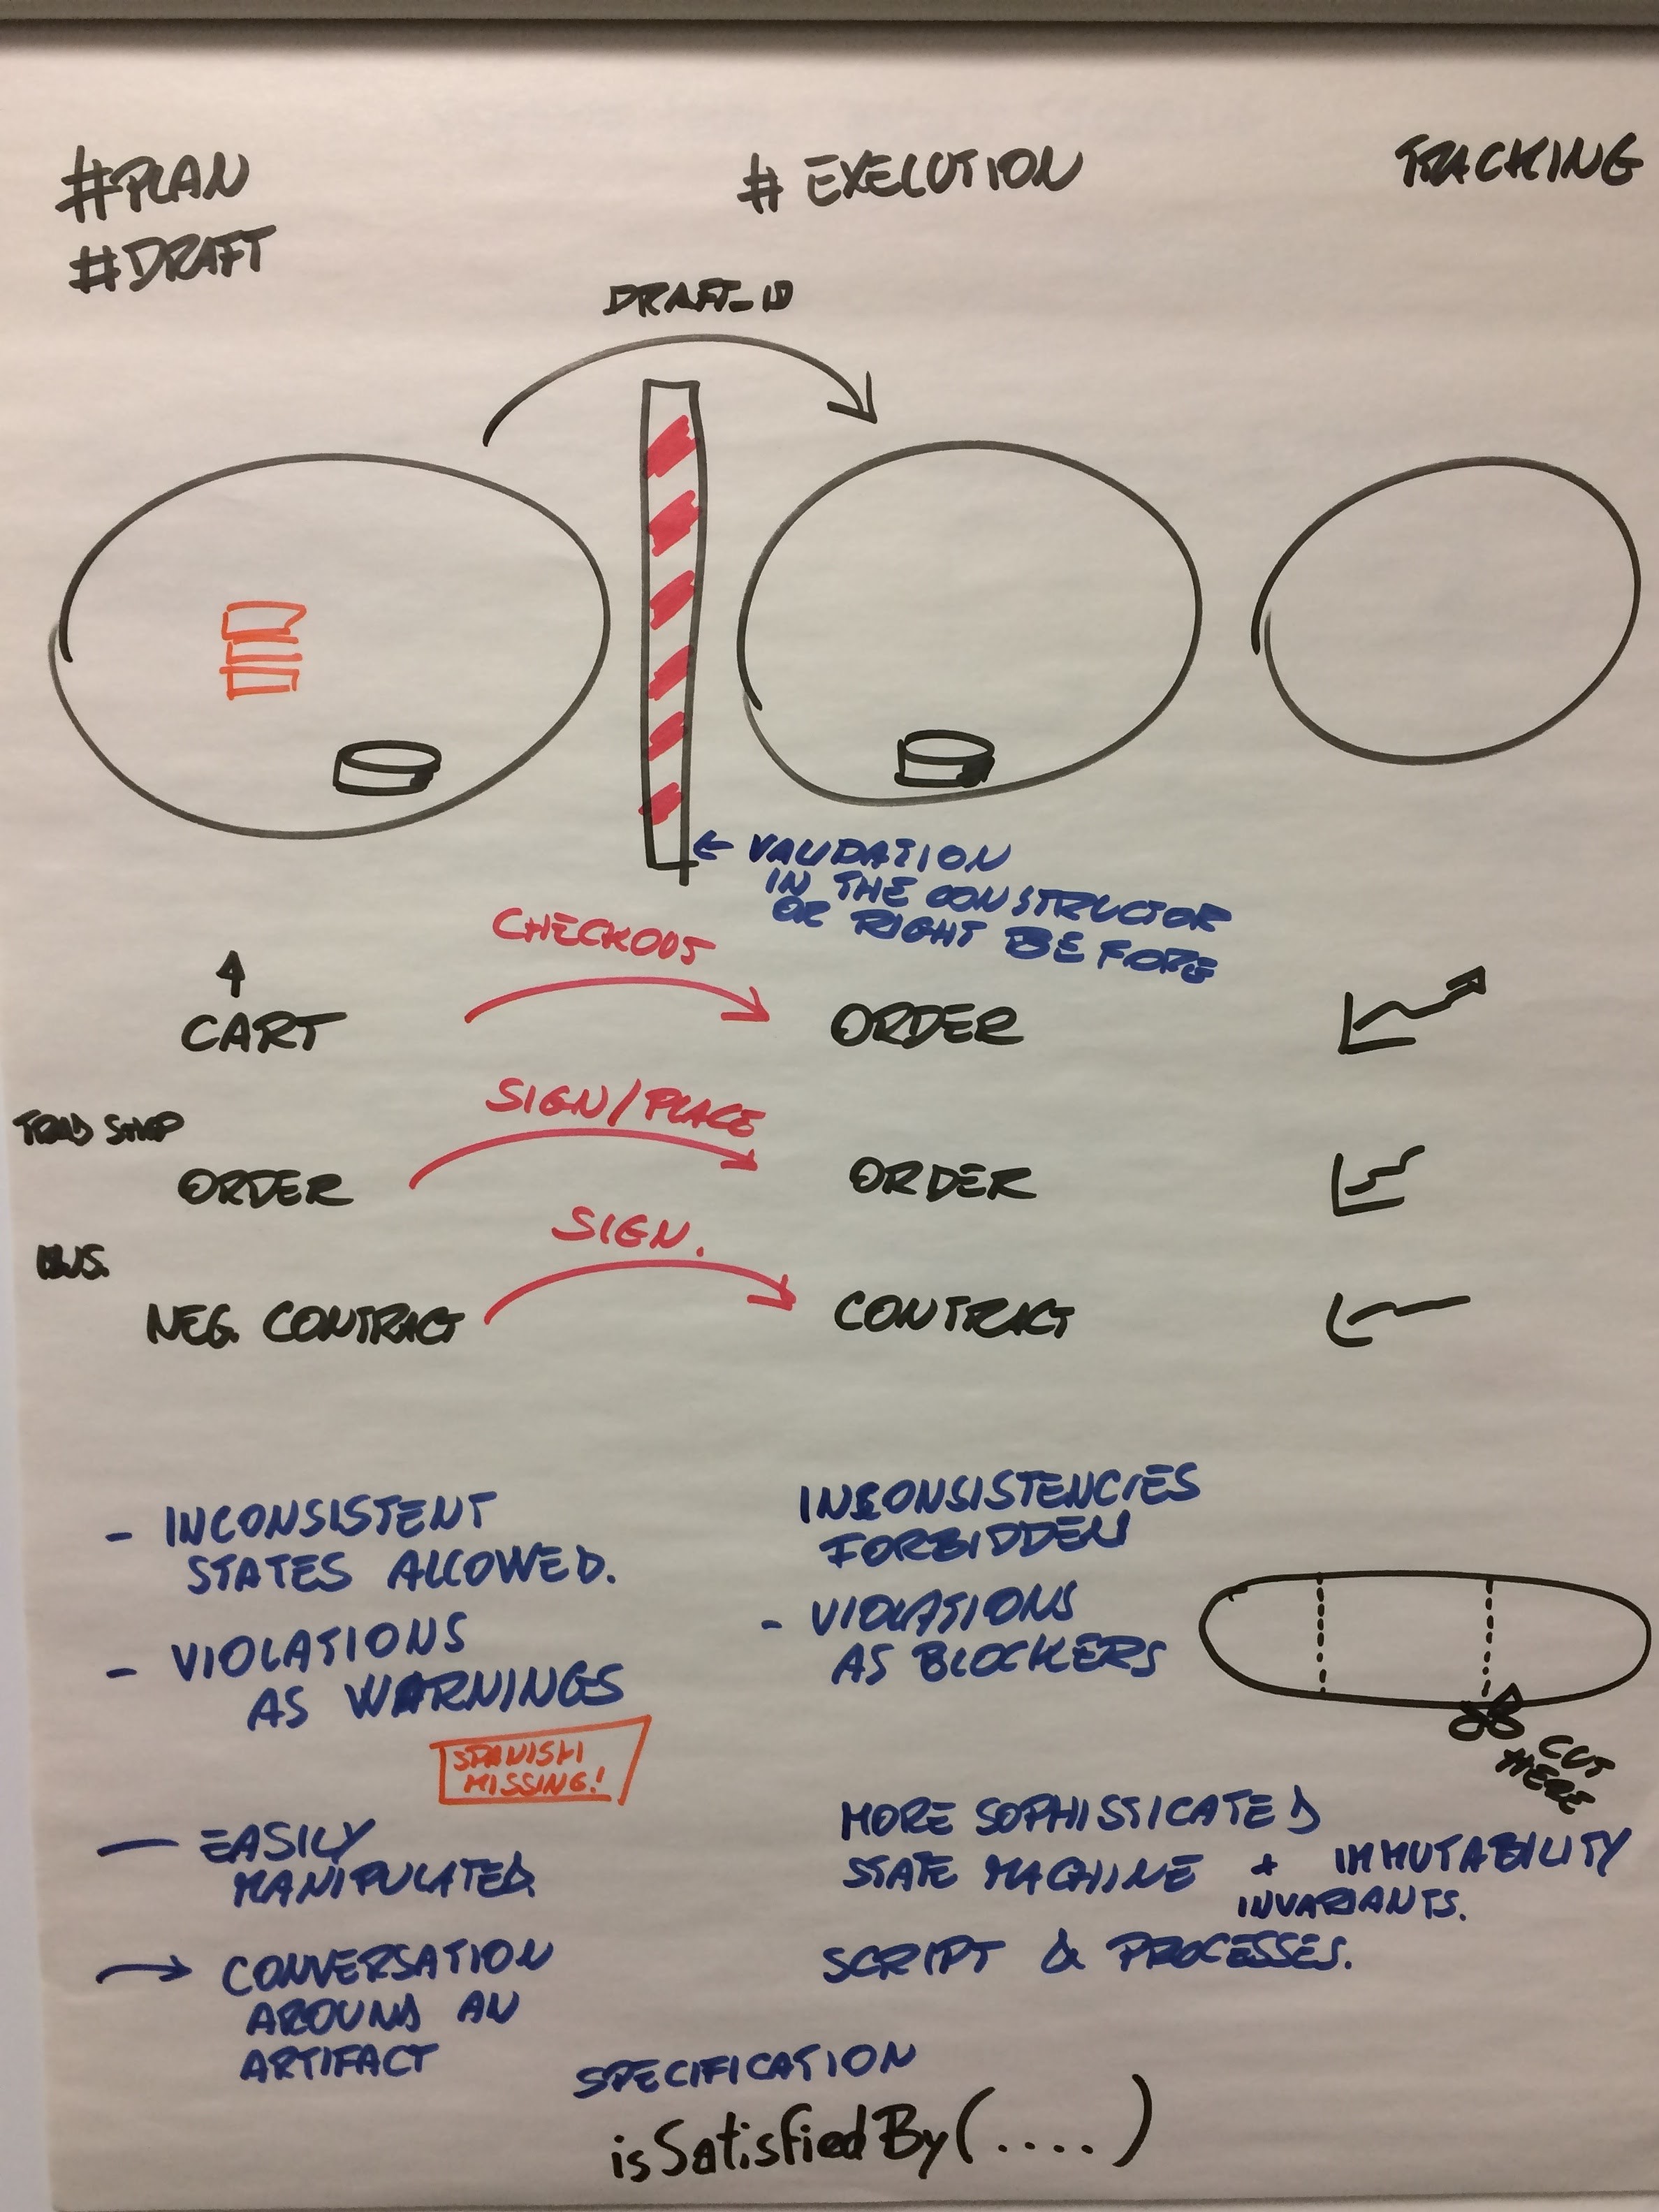 #PLAN
#DRAFT
# EXECUTION
TRACKING
DRAFT_ID
← VALIDATION
IN THE CONSTRUCTOR
OR RIGHT BEFORE
CHECKOUT
CART
ORDER
SIGN/PLACE
TRAD SHOP
ORDER
ORDER
SIGN.
BUS.
NEG. CONTRACT
CONTRACT
- INCONSISTENT
STATES ALLOWED.
- VIOLATIONS
AS WARNINGS
SPANISH
MISSING!
— EASILY
MANIPULATED.
→ CONVERSATION
AROUND AN
ARTIFACT
INCONSISTENCIES
FORBIDDEN
- VIOLATIONS
AS BLOCKERS
CUT
HERE
MORE SOPHISTICATED
STATE MACHINE + IMMUTABILITY
INVARIANTS.
SCRIPT & PROCESSES.
SPECIFICATION
isSatisfiedBy(....)